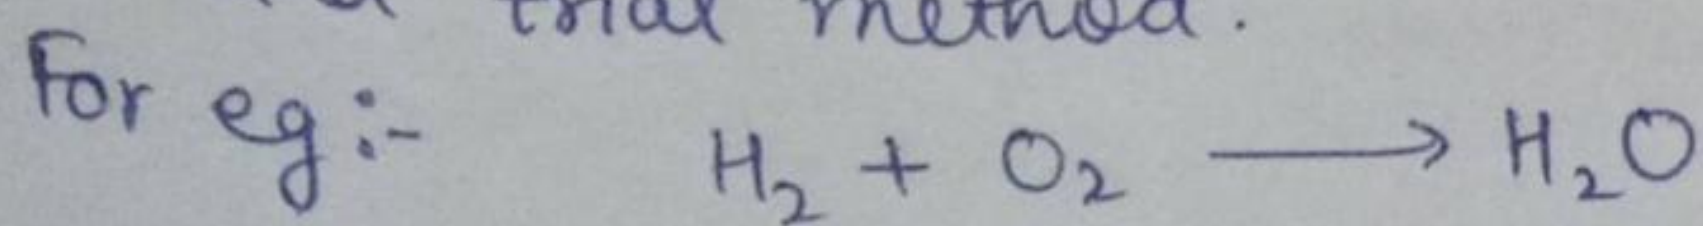 trial method.
For eg:- H₂ + O₂ ⟶ H₂O